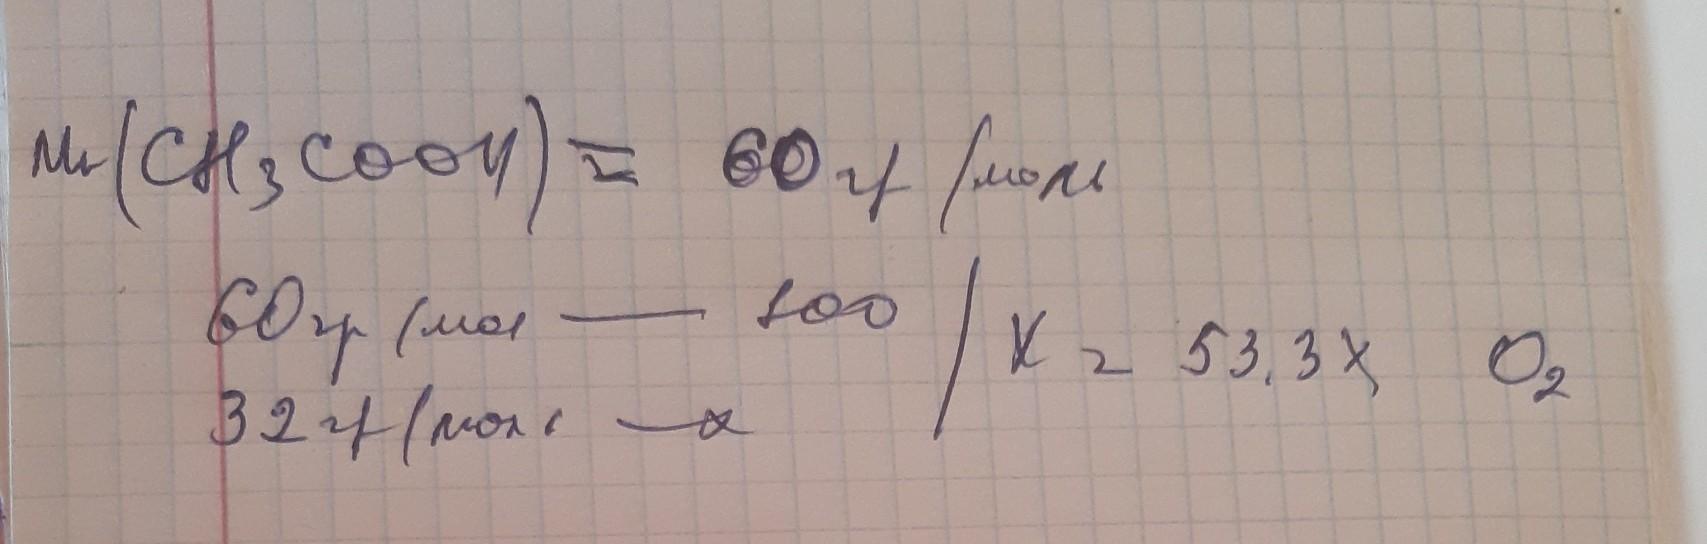 Mr(CH3COOH) = 60 гр/моль
60 гр/мол — 100 / X = 53,3% O2
32 гр/моль — x